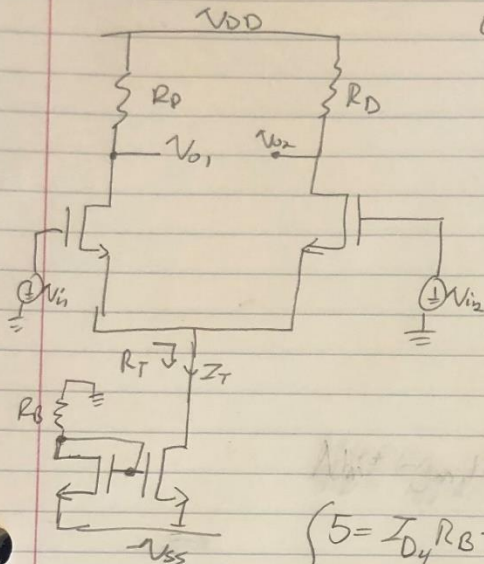 VDD
RD RD
Vo1 Vo2
Vin Vin2
RT IT
RB
-VSS
(5 = ID4 RB -